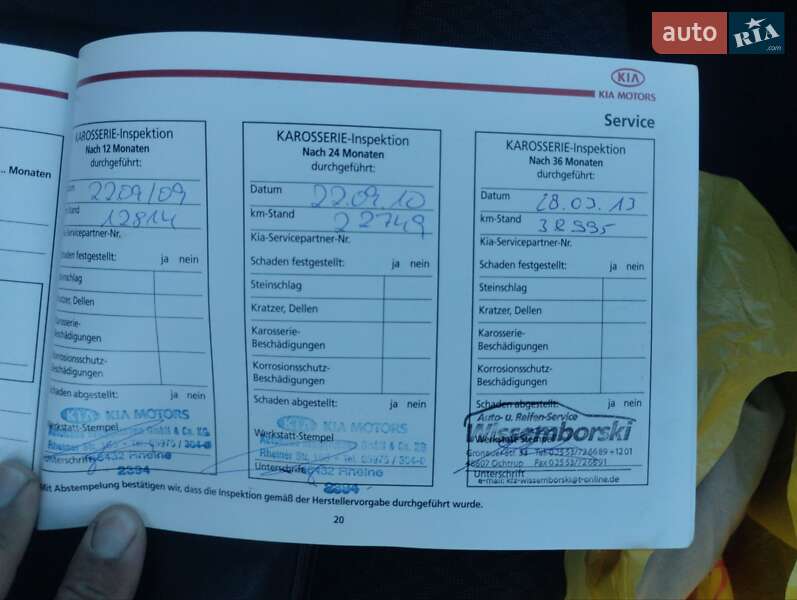 auto RIA .com
KIA
KIA MOTORS
Service
... Monaten
KAROSSERIE-Inspektion
Nach 12 Monaten
durchgeführt:
2209/09
12814
Kia-Servicepartner-Nr.
Schaden festgestellt: ja nein
Steinschlag
Kratzer, Dellen
Karosserie-
Beschädigungen
Korrosionsschutz-
Beschädigungen
Schaden abgestellt: ja nein
KIA MOTORS
Werkstatt-Stempel
Unterschrift 48432 Rheine
2394
KAROSSERIE-Inspektion
Nach 24 Monaten
durchgeführt:
Datum 22.09.10
km-Stand 22749
Kia-Servicepartner-Nr.
Schaden festgestellt: ja nein
Steinschlag
Kratzer, Dellen
Karosserie-
Beschädigungen
Korrosionsschutz-
Beschädigungen
Schaden abgestellt: ja nein
KIA MOTORS
Werkstatt-Stempel
Unterschrift 48432 Rheine
2394
KAROSSERIE-Inspektion
Nach 36 Monaten
durchgeführt:
Datum 28.03.13
km-Stand 38995
Kia-Servicepartner-Nr.
Schaden festgestellt: ja nein
Steinschlag
Kratzer, Dellen
Karosserie-
Beschädigungen
Korrosionsschutz-
Beschädigungen
Schaden abgestellt: ja nein
Auto- u. Reifen-Service
Wissemborski
Werkstatt-Stempel
48607 Ochtrup
Unterschrift
e-mail: kfz-wissemborski@t-online.de
Mit Abstempelung bestätigen wir, dass die Inspektion gemäß der Herstellervorgabe durchgeführt wurde.
20